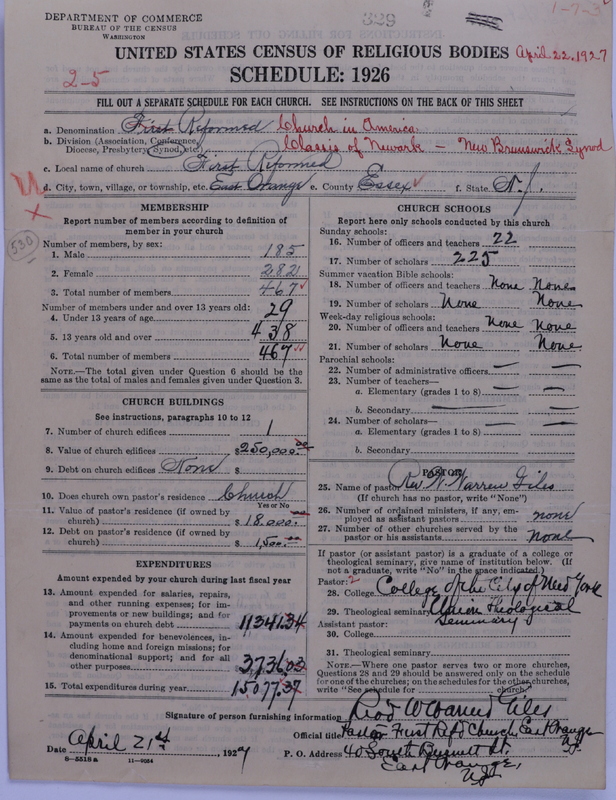 DEPARTMENT OF COMMERCE
BUREAU OF THE CENSUS
WASHINGTON
329
1-7-3
UNITED STATES CENSUS OF RELIGIOUS BODIES April 22, 1927
2-5
SCHEDULE: 1926
FILL OUT A SEPARATE SCHEDULE FOR EACH CHURCH. SEE INSTRUCTIONS ON THE BACK OF THIS SHEET
a. Denomination First Reformed Church in America
b. Division (Association, Conference, Diocese, Presbytery, Synod, etc.) Classis of Newark - New Brunswick Synod
c. Local name of church First Reformed
d. City, town, village, or township, etc. East Orange e. County Essex f. State N.J.
530
MEMBERSHIP
Report number of members according to definition of member in your church
Number of members, by sex:
1. Male 185
2. Female 282
3. Total number of members 467
Number of members under and over 13 years old:
4. Under 13 years of age 29
5. 13 years old and over 438
6. Total number of members 467
NOTE.—The total given under Question 6 should be the same as the total of males and females given under Question 3.
CHURCH BUILDINGS
See instructions, paragraphs 10 to 12
7. Number of church edifices 1
8. Value of church edifices $250,000.00
9. Debt on church edifices None $
10. Does church own pastor's residence Church
Yes or No
11. Value of pastor's residence (if owned by church) $18,000.
12. Debt on pastor's residence (if owned by church) $1,500.00
EXPENDITURES
Amount expended by your church during last fiscal year
13. Amount expended for salaries, repairs, and other running expenses; for improvements or new buildings; and for payments on church debt 11341.34
14. Amount expended for benevolences, including home and foreign missions; for denominational support; and for all other purposes 3736.03
15. Total expenditures during year 15077.37
CHURCH SCHOOLS
Report here only schools conducted by this church
Sunday schools:
16. Number of officers and teachers 22
17. Number of scholars 225
Summer vacation Bible schools:
18. Number of officers and teachers None None
19. Number of scholars None None
Week-day religious schools:
20. Number of officers and teachers None None
21. Number of scholars None None
Parochial schools:
22. Number of administrative officers
23. Number of teachers—
a. Elementary (grades 1 to 8)
b. Secondary
24. Number of scholars—
a. Elementary (grades 1 to 8)
b. Secondary
PASTOR
25. Name of pastor Rev. W. Warren Giles
(If church has no pastor, write "None")
26. Number of ordained ministers, if any, employed as assistant pastors none
27. Number of other churches served by the pastor or his assistants none
If pastor (or assistant pastor) is a graduate of a college or theological seminary, give name of institution below. (If not a graduate, write "No" in the space indicated.)
Pastor: 2
28. College College of the City of New York
29. Theological seminary Union Theological Seminary
Assistant pastor:
30. College
31. Theological seminary
NOTE.—Where one pastor serves two or more churches, Questions 28 and 29 should be answered only on the schedule for one of the churches; on the schedules for the other churches, write "See schedule for church."
Signature of person furnishing information Warren Giles
Official title Pastor First Ref'd Church, East Orange N.J.
Date April 21st, 1927 P. O. Address 40 South Burnett St.
East Orange,
N.J.
8—5518a 11-9034